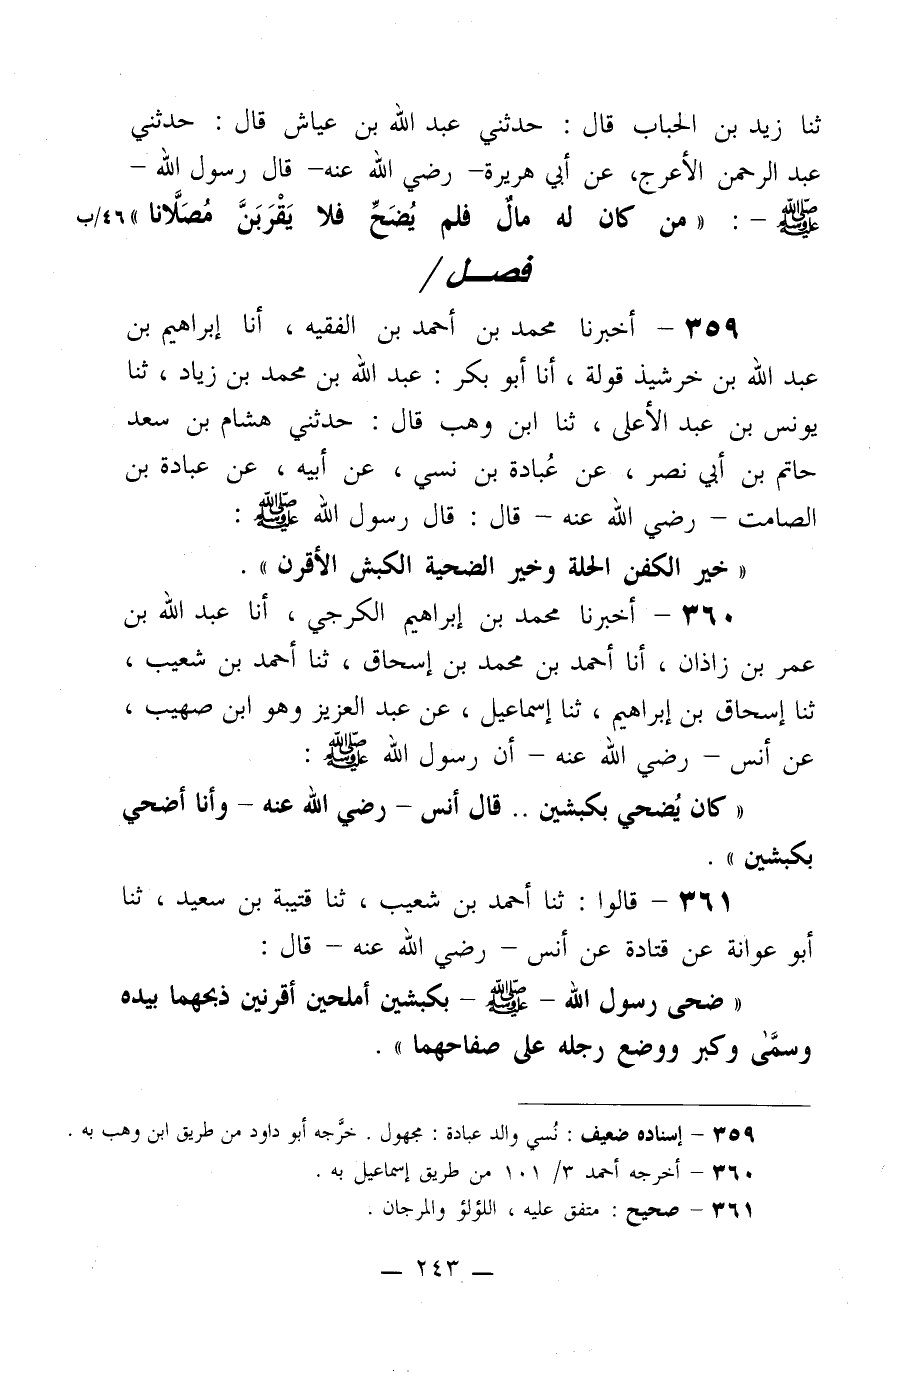 ثنا زيد بن الحباب قال : حدثني عبد الله بن عياش قال : حدثني
عبد الرحمن الأعرج، عن أبي هريرة– رضي الله عنه– قال رسول الله –
ﷺ – : « من كان له مالٌ فلم يُضَحِّ فلا يَقْرَبَنَّ مُصَلَّانا » ٤٦/ب
فصـــل /
٣٥٩ – أخبرنا محمد بن أحمد بن الفقيه ، أنا إبراهيم بن
عبد الله بن خرشيذ قولة ، أنا أبو بكر : عبد الله بن محمد بن زياد ، ثنا
يونس بن عبد الأعلى ، ثنا ابن وهب قال : حدثني هشام بن سعد
حاتم بن أبي نصر ، عن عُبادة بن نسي ، عن أبيه ، عن عبادة بن
الصامت – رضي الله عنه – قال : قال رسول الله ﷺ :
« خير الكفن الحلة وخير الضحية الكبش الأقرن » .
٣٦٠ – أخبرنا محمد بن إبراهيم الكرجي ، أنا عبد الله بن
عمر بن زاذان ، أنا أحمد بن محمد بن إسحاق ، ثنا أحمد بن شعيب ،
ثنا إسحاق بن إبراهيم ، ثنا إسماعيل ، عن عبد العزيز وهو ابن صهيب ،
عن أنس – رضي الله عنه – أن رسول الله ﷺ :
« كان يُضحي بكبشين .. قال أنس – رضي الله عنه – وأنا أضحي
بكبشين » .
٣٦١ – قالوا : ثنا أحمد بن شعيب ، ثنا قتيبة بن سعيد ، ثنا
أبو عوانة عن قتادة عن أنس – رضي الله عنه – قال :
« ضحى رسول الله – ﷺ – بكبشين أملحين أقرنين ذبحهما بيده
وسمَّى وكبر ووضع رجله على صفاحهما » .
٣٥٩ – إسناده ضعيف : نُسي والد عبادة : مجهول . خرَّجه أبو داود من طريق ابن وهب به .
٣٦٠ – أخرجه أحمد ٣/ ١٠١ من طريق إسماعيل به .
٣٦١ – صحيح : متفق عليه ، اللؤلؤ والمرجان .
— ٢٤٣ —